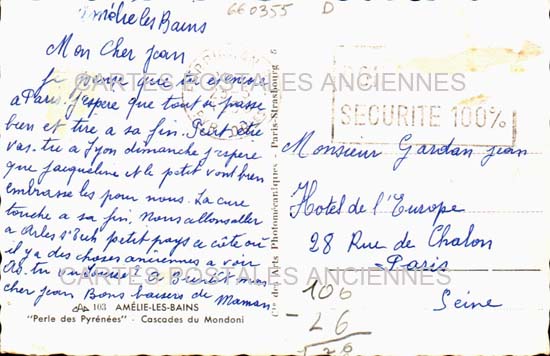 660355 D
Amélie les Bains
Mon Cher Jean
je pense que tu es
a Paris. j'espere que tout si passe
bien et tire a sa fin. Peut être
vas. tu a Lyon dimanche j'espere
que jacqueline et le petit vont bien
embrasse les pour nous. La cure
touche a sa fin. Nous allons aller
a Arles s/ petit pays a côte où
il y a des choses anciennes a voir
As. tu vu a Bientôt mon
cher jean Bons baisers de Maman
103 AMÉLIE-LES-BAINS
"Perle des Pyrénées" - Cascades du Mondoni
Cie des Arts Photomécaniques - Paris-Strasbourg 8
SÉCURITÉ 100%
Monsieur Gardan jean
Hotel de l'Europe
28 Rue de Chalon
Paris
Seine
106
- 26
CARTES POSTALES ANCIENNES
CARTES POSTALES ANCIENNES